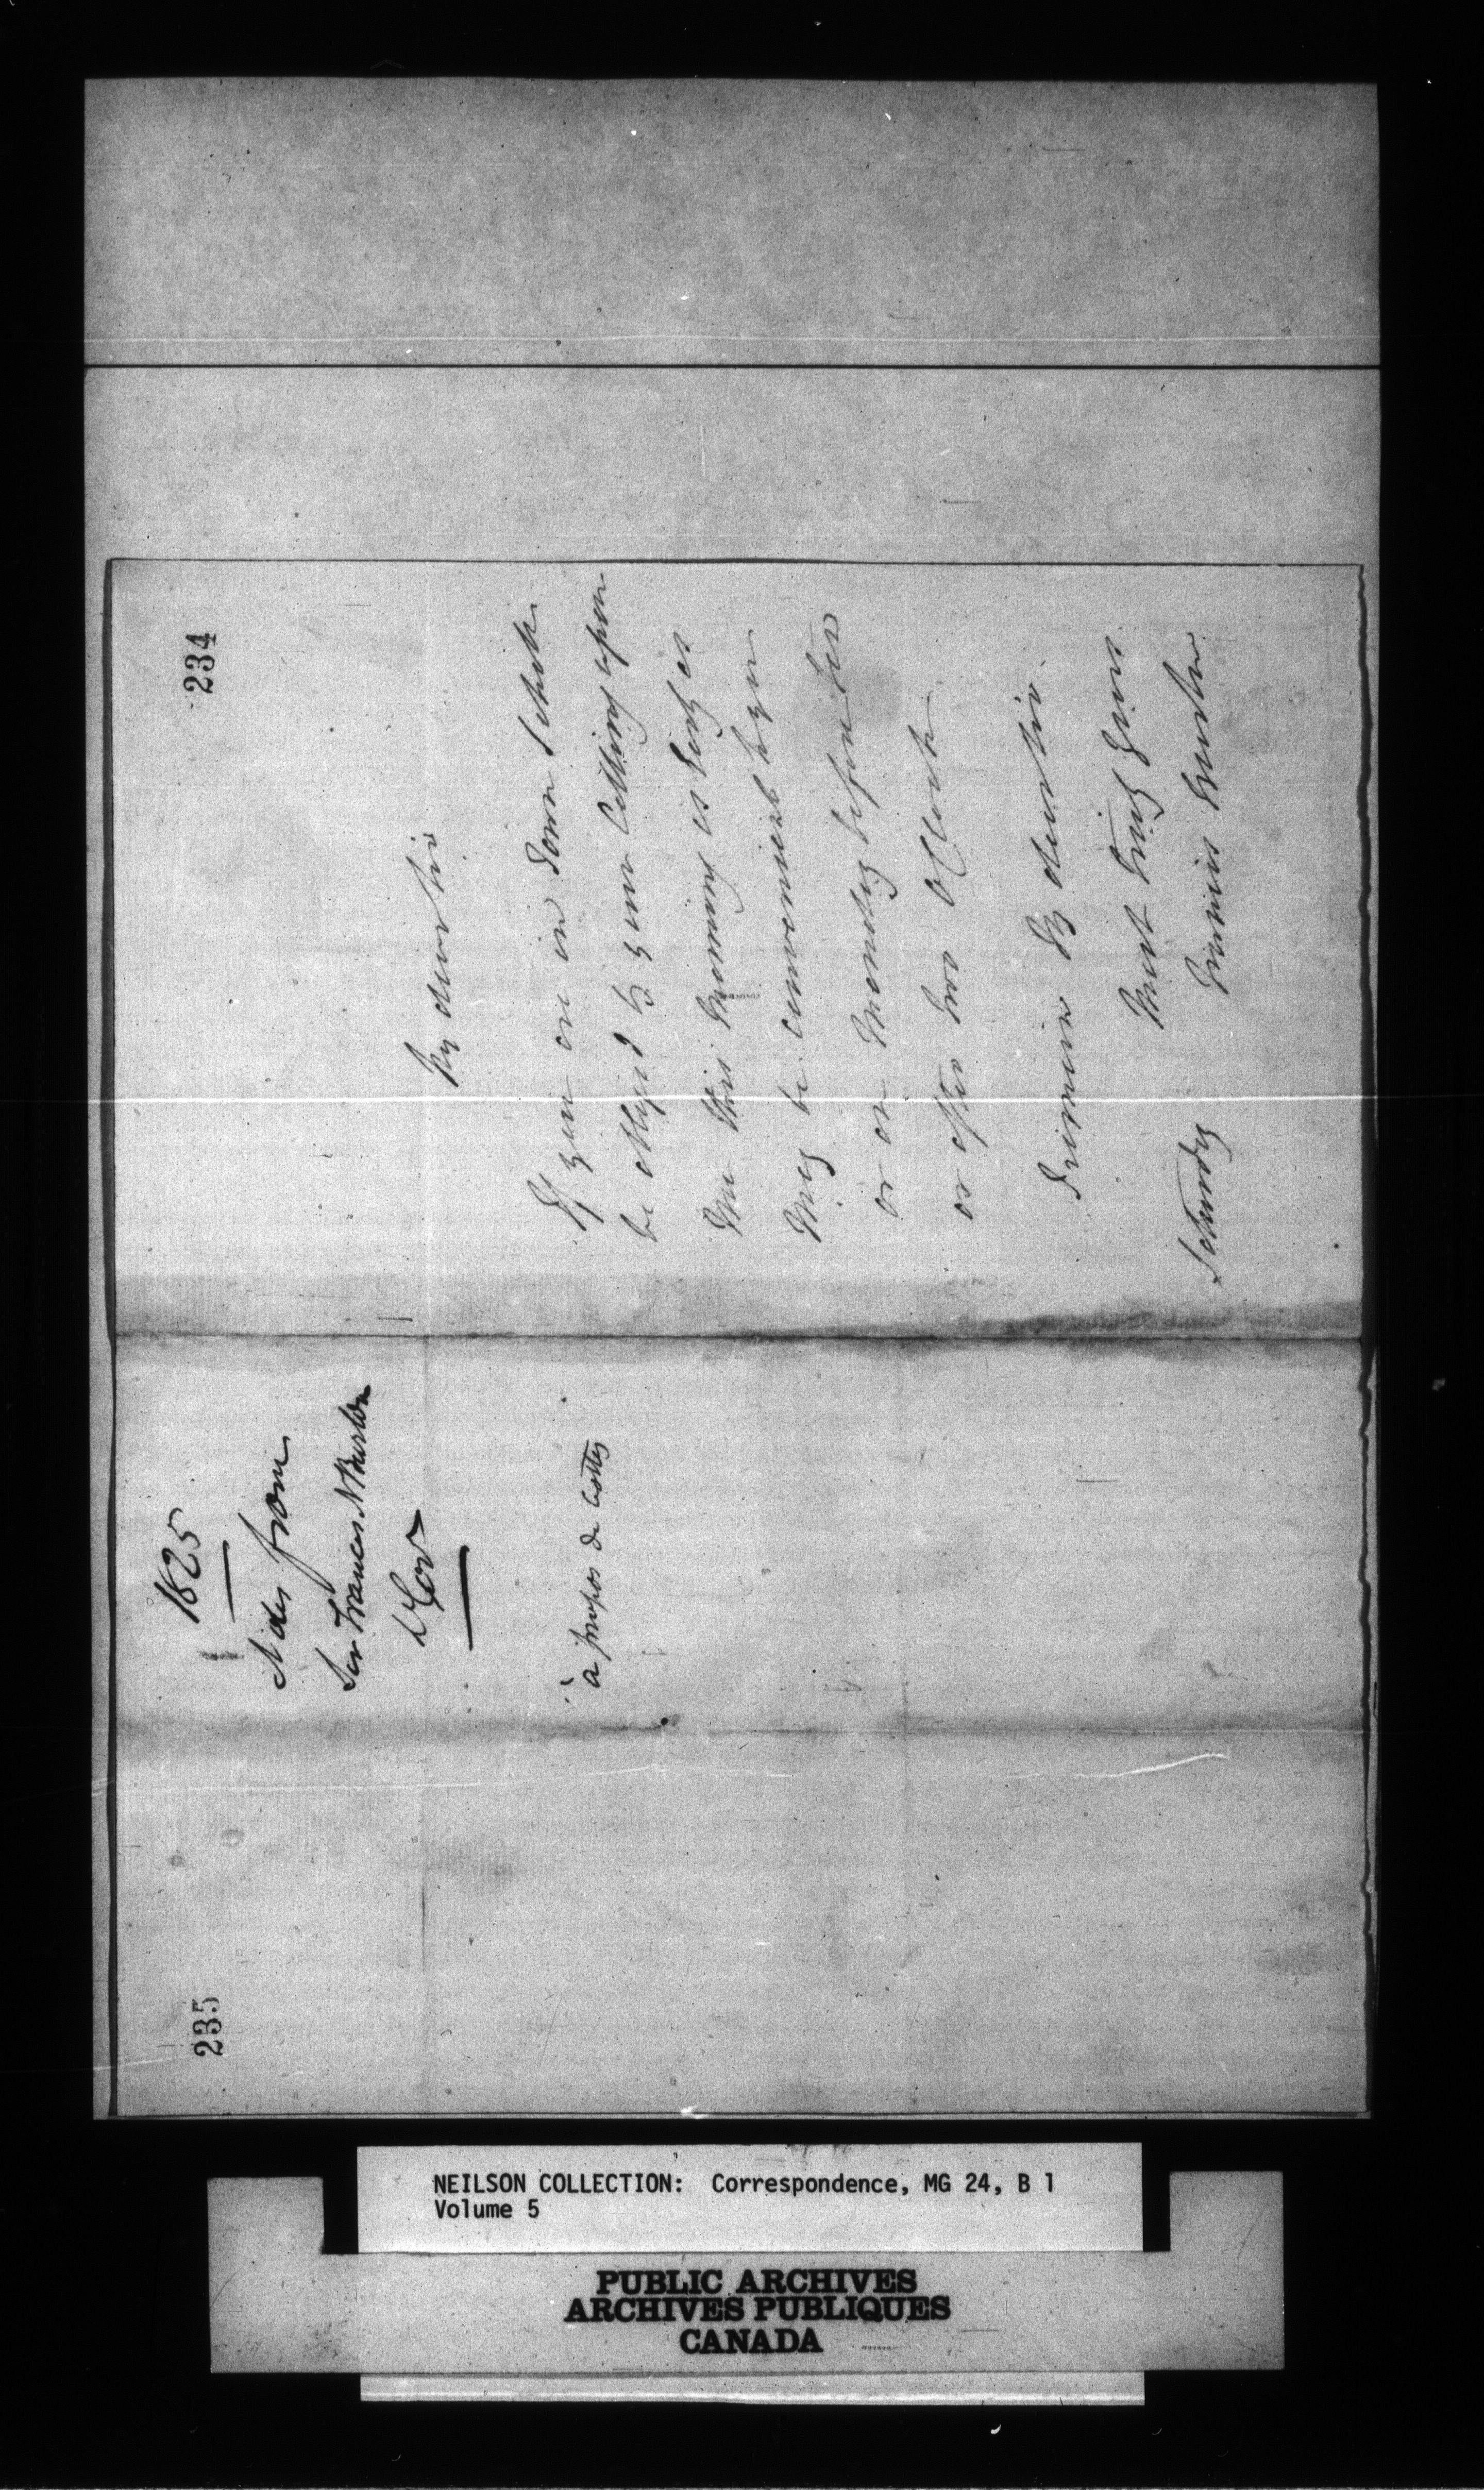 234
My dear Sir
If you are in Town I shall
be obliged by your calling upon
me this morning as early as
may be convenient to you
or on Monday before
or after two o'Clock
I remain My dear Sir
Most truly yours
Saturday Francis Burton
1825
Notes from
Sir Francis N Burton
Lt Gov
à propos de
235
NEILSON COLLECTION: Correspondence, MG 24, B 1
Volume 5
PUBLIC ARCHIVES
ARCHIVES PUBLIQUES
CANADA